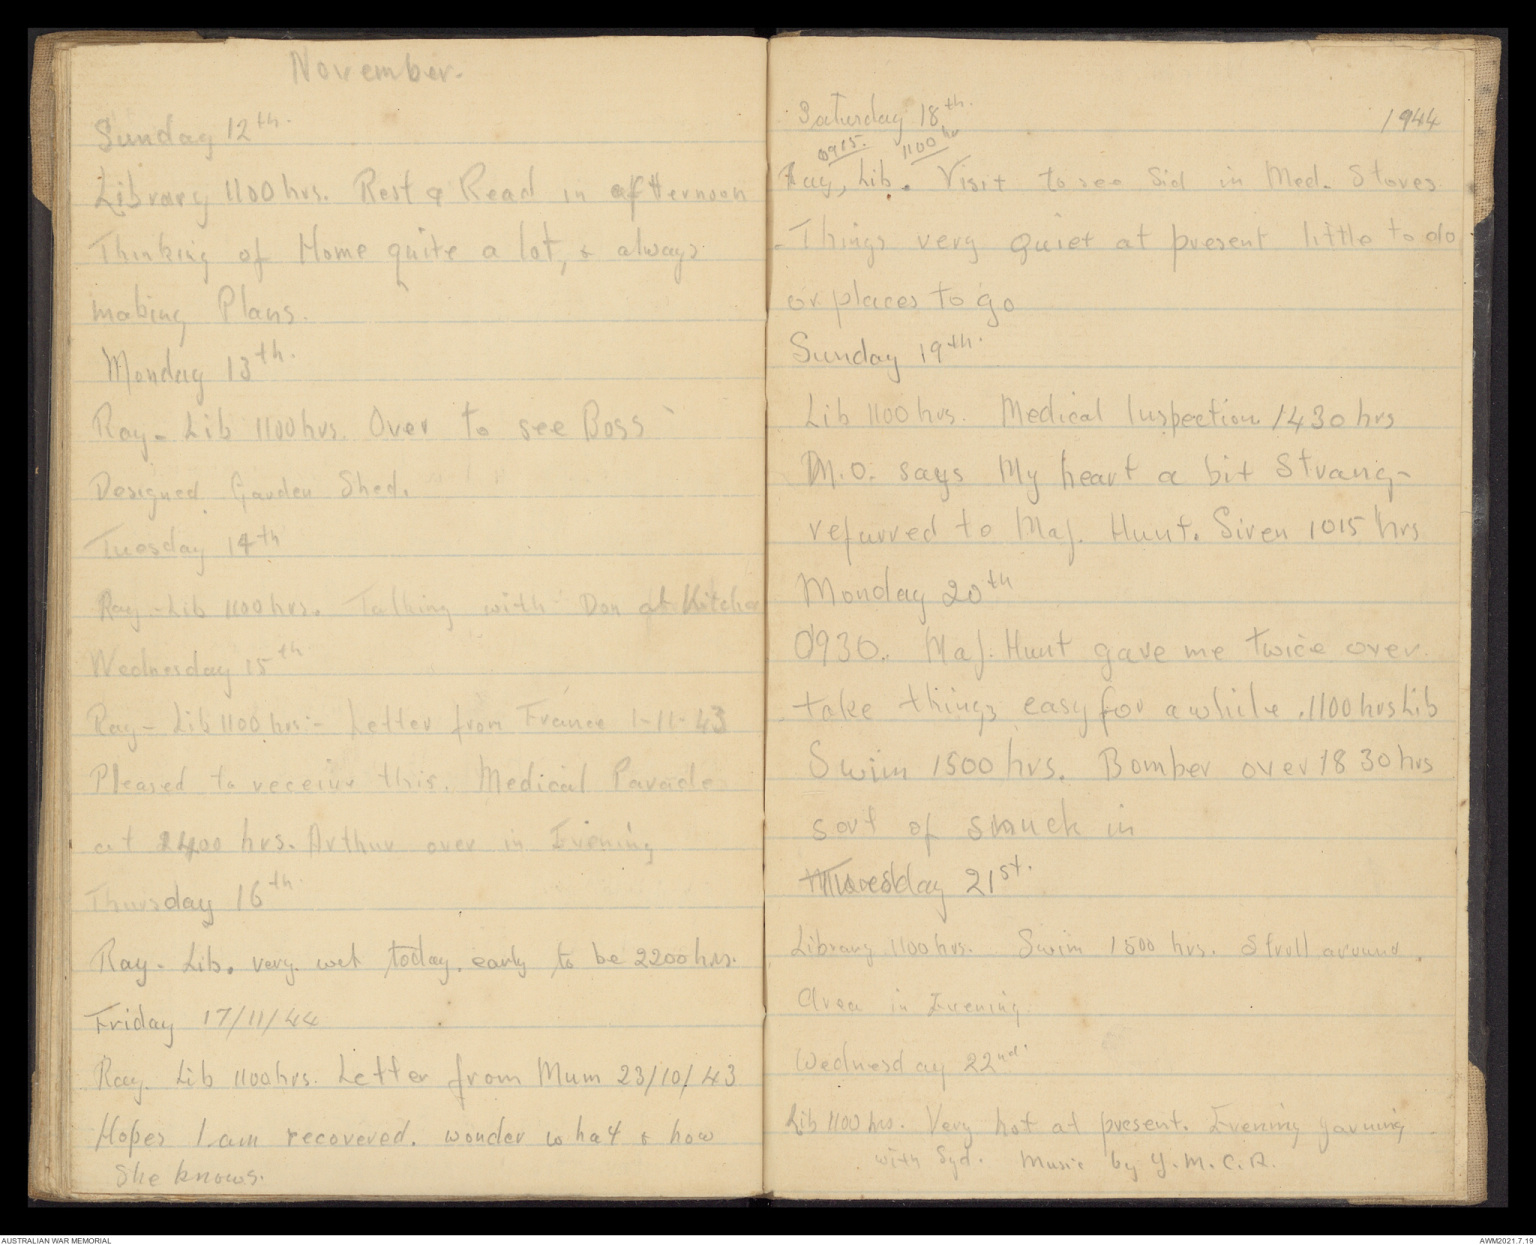 November.
Sunday 12th.
Library 1100 hrs. Rest & Read in afternoon
Thinking of Home quite a lot, & always
making Plans.
Monday 13th.
Ray - Lib 1100 hrs. Over to see Boss
Designed Garden Shed.
Tuesday 14th
Ray - Lib 1100 hrs. Talking with Don at Kitchen
Wednesday 15th
Ray - Lib 1100 hrs - Letter from France 1-11-43
Pleased to receive this. Medical Parade
at 2400 hrs. Arthur over in Evening
Thursday 16th
Ray - Lib. very wet today. early to be 2200 hrs.
Friday 17/11/44
Ray. Lib 1100 hrs. Letter from Mum 23/10/43
Hopes I am recovered. wonder what & how
She knows.
Saturday 18th. 1944
0915. 1100 hr
Ray, Lib. Visit to see Sid in Med. Stores
Things very quiet at present little to do
or places to go
Sunday 19th.
Lib 1100 hrs. Medical Inspection 1430 hrs
M.O. says My heart a bit Strang -
referred to Maj. Hunt. Siren 1015 hrs
Monday 20th
0930. Maj. Hunt gave me twice over.
take things easy for a while. 1100 hrs Lib
Swim 1500 hrs. Bomber over 1830 hrs
sort of snuck in
Tuesday 21st.
Library 1100 hrs. Swim 1500 hrs. Stroll around
Area in Evening.
Wednesday 22nd.
Lib 1100 hrs. Very hot at present. Evening yarning
with Syd. Music by Y.M.C.A.
AUSTRALIAN WAR MEMORIAL
AWM2021.7.19